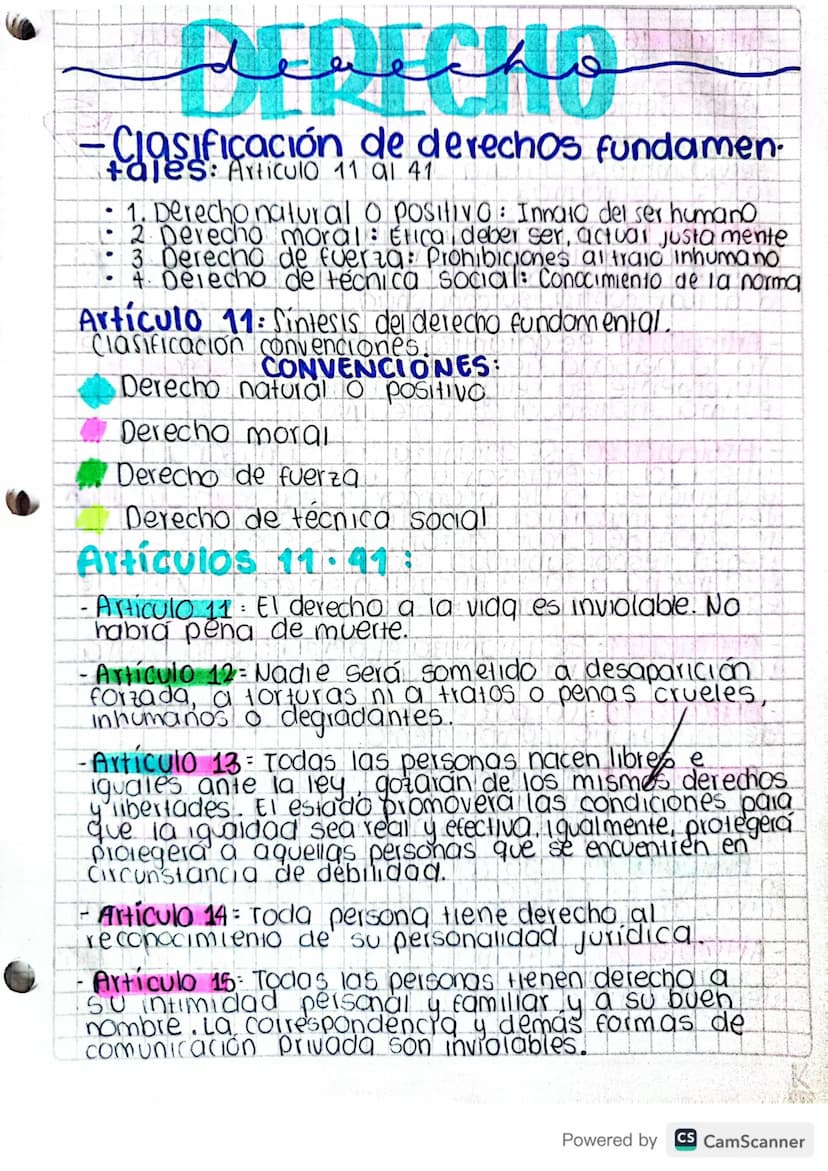 DERECHO
derecho
- Clasificación de derechos fundamen-
tales: Artículo 11 al 41
• 1. Derecho natural o positivo: Innato del ser humano
• 2. Derecho moral: Ética, deber ser, actuar justamente
• 3. Derecho de fuerza: Prohibiciones al trato inhumano
• 4. Derecho de técnica social: Conocimiento de la norma
Artículo 11: Síntesis del derecho fundamental.
Clasificación convenciones.
CONVENCIONES:
Derecho natural o positivo
Derecho moral
Derecho de fuerza
Derecho de técnica social
Artículos 11-41:
- Artículo 11: El derecho a la vida es inviolable. No
habrá pena de muerte.
- Artículo 12= Nadie será sometido a desaparición
forzada, a torturas ni a tratos o penas crueles,
inhumanos o degradantes.
- Artículo 13= Todas las personas nacen libres e
iguales ante la ley, gozarán de los mismos derechos
y libertades. El estado promoverá las condiciones para
que la igualdad sea real y efectiva, igualmente, protegerá
protegerá a aquellas personas que se encuentren en
circunstancia de debilidad.
- Artículo 14= Toda persona tiene derecho al
reconocimiento de su personalidad jurídica.
- Artículo 15= Todas las personas tienen derecho a
su intimidad personal y familiar y a su buen
nombre. La correspondencia y demás formas de
comunicación privada son inviolables.
K
Powered by CS CamScanner